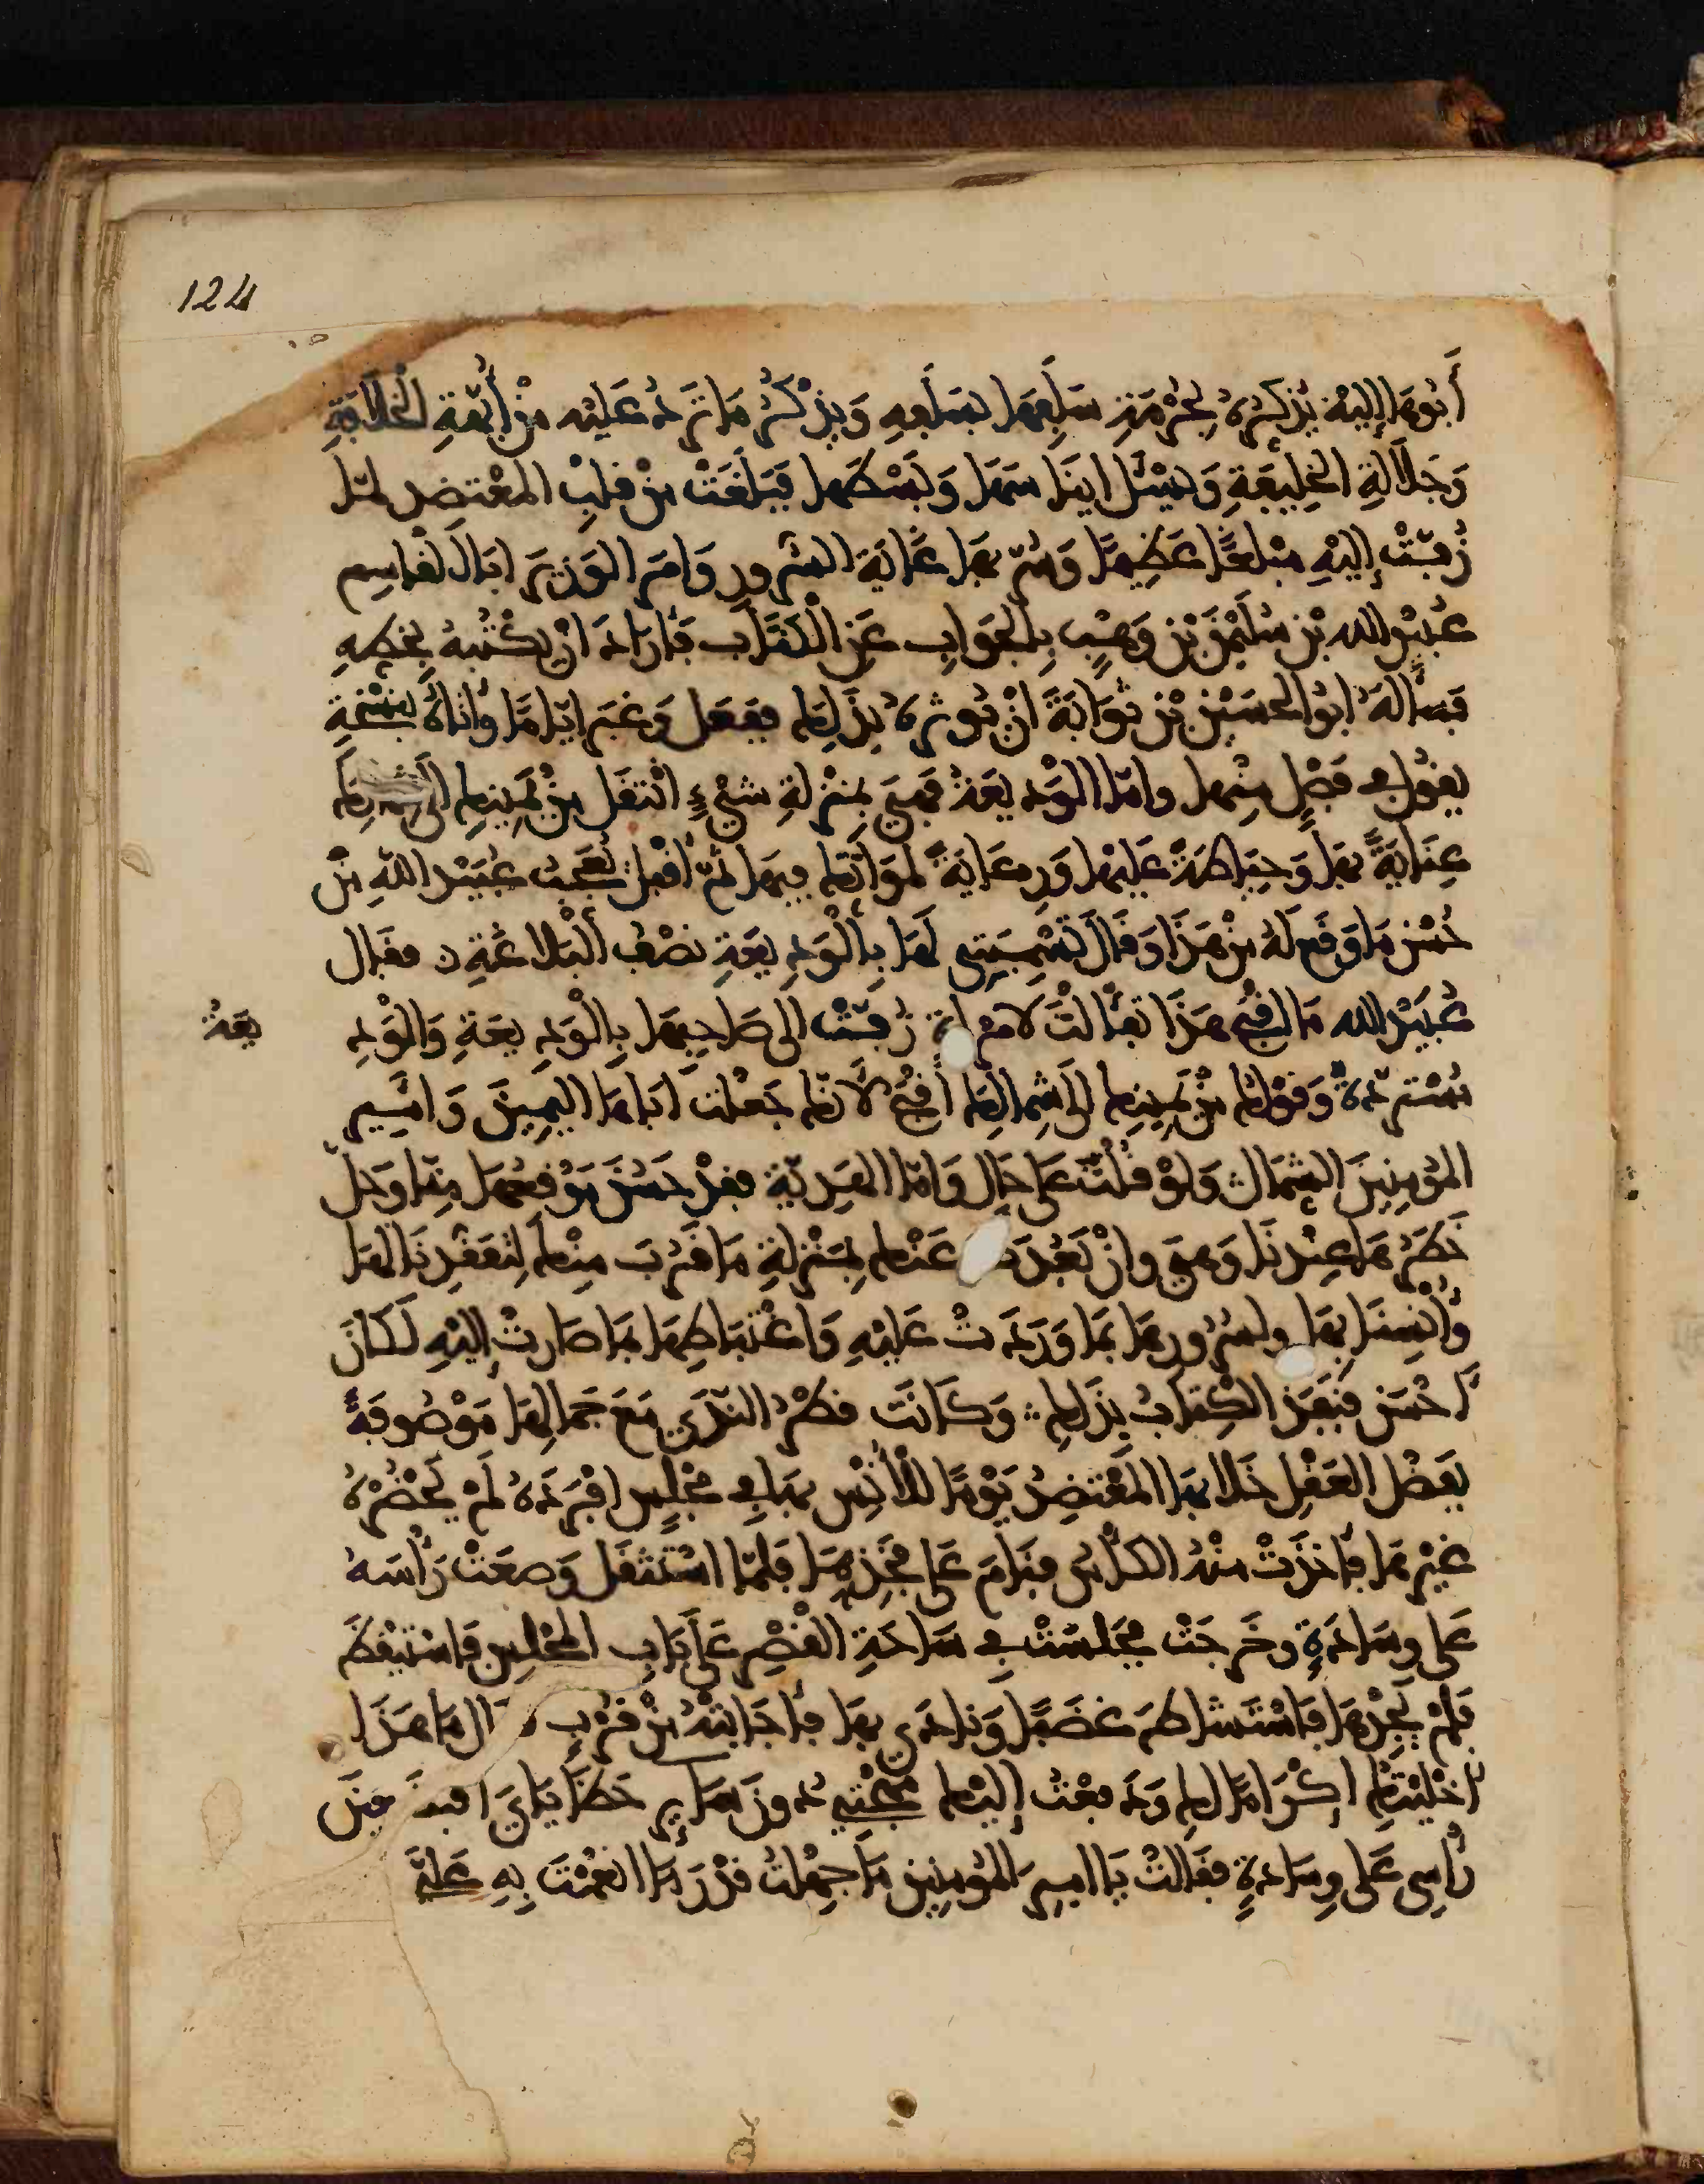 124
أَبُوهَا إِلَيْهِ يُذَكِّرُهُ بِحُرْمَةِ سَلَفِهَا بِسَلَفِهِ وَيَذْكُرُ مَا تَرِدُ عَلَيْهِ مِنْ أُبَّهَةِ الْخِلَافَةِ
وَجَلَالَةِ الْخَلِيفَةِ وَيَسْئَلُ ايناسَهَا وَبَسْطَهَا فَبَلَغَتْ مِنْ قَلْبِ الْمُعْتَضِدِ لَمَّا
زُفَّتْ إِلَيْهِ مَبْلَغًا عَظِيمًا وَسُرَّ بِهَا غَايَةَ السُّرُورِ وَامَرَ الوَزِيرَ ابَا الْقَاسِمِ
عُبَيْدَ الله بْنَ سُلَيْمٰنَ بْنِ وَهْبٍ بِالْجَوَابِ عَنِ الْكِتَابِ فَأَرَادَ انْ يَكْتُبَهُ بِخَطِّهِ
فَسَأَلَهُ ابُو الْحُسَيْنِ بْنُ ثَوَابَةَ انْ يُوثِرَهُ بِذَلِكَ فَفَعَلَ وَغَبَرَ ايَّامًا وَأَتَاهُ بِنُسْخَةٍ
يَقُولُ فِي فَصْلٍ مِنْهَا وامّا الْوَدِيعَةُ فَهِيَ بِمَنْزِلَةِ شَيْءٍ انْتَقَلَ مِنْ يَمِينِكَ الَى شِمَالِكَ
عِنَايَةً بِهَا وَحِيَاطَةً عَلَيْهَا وَرِعَايَةً لِمَوَاتِّكَ فِيهَا ثُمَّ أَقْبَلَ يُعَجِّبُ عُبَيْدَ اللهِ مِنْ
حُسْنِ مَا وَقَعَ لَهُ مِنْ هَذَا وَقَالَ تَسْمِيَتِي لَهَا بِالْوَدِيعَةِ نِصْفُ الْبَلَاغَةِ ن فَقَالَ
عُبَيْدُ الله مَا اقْبَحَ هَذَا تَفَأَّلْتَ لامْرَأة زُفَّتْ الى صَاحِبِهَا بِالْوَدِيعَةِ وَالْوَدِ
يعَةُ
مُسْتَرَدَّةٌ وَقَوْلُكَ مِنْ يَمِينِكَ الَى شِمَالِكَ أَقْبَحُ لَأنَّكَ جَعَلْتَ ابَاهَا الْيَمِينَ وَامِيرَ
الْمُؤْمِنِينَ الشِّمَالَ وَلَوْ قُلْتَ عَلَى حَالٍ وَامَّا الْهَدِيَّةُ فَقَدْ حَسُنَ مَوْقِعُهَا مِنَّا وَجَلَّ
خَطَرُهَا عِنْدَنَا وَهِيَ وانْ بَعُدَتْ عَنْكَ بِمَنْزِلَةِ مَا قَرُبَ مِنْكَ لِتَفَقُّدِنَا لَهَا
وَأُنْسِنَا بِهَا ولِسُرُورِهَا بِمَا وَرَدَتْ عَلَيْهِ وَاغْتِبَاطِهَا بِمَا صَارَتْ إِلَيْهِ لَكَانَ
أَحْسَنَ فَنَفَذَ الْكِتَابُ بِذَلِكَ وَكَانَتْ قَطْرُ النَّدَى مَعَ جَمَالِهَا مَوْصُوفَةً
بِفَضْلِ الْعَقْلِ خَلَا بِهَا الْمُعْتَضِدُ يَوْمًا لِلْأُنْسِ بِهَا فِي مَجْلِسٍ افْرَدَهُ لَمْ يَحْضُرْهُ
غَيْرُهَا فَأَخَذَتْ مِنْهُ الكَأْسُ فَنَامَ عَلَى فَخِذِهَا فَلَمَّا اسْتَثْقَلَ وَضَعَتْ رَأْسَهُ
عَلَى وِسَادَةٍ وخَرَجَتْ فَجَلَسَتْ فِي سَاحَةِ الْقَصْرِ عَلَى بَابِ الْمَجْلِسِ فَاسْتَيْقَظَ
فَلَمْ يَجِدْهَا فَاسْتَشَاطَ غَضَبًا وَنَادَى بِهَا فَأَجَابَتْهُ مِنْ قُرْبٍ قَالَ مَا هَذَا
أَخْلَيْتُكِ اكْرَامًا لَكِ وَدَفَعْتُ إِلَيْكِ مُهْجَتِي دُونَ سَائِرِ حَظَايَايَ افَتَضَعِينَ
رَأْسِي عَلَى وِسَادَةٍ فَقَالَتْ يَا امِيرَ الْمُؤْمِنِينَ مَا جَهِلْتُ قَدْرَ مَا انْعَمْتَ بِهِ عَلَيَّ